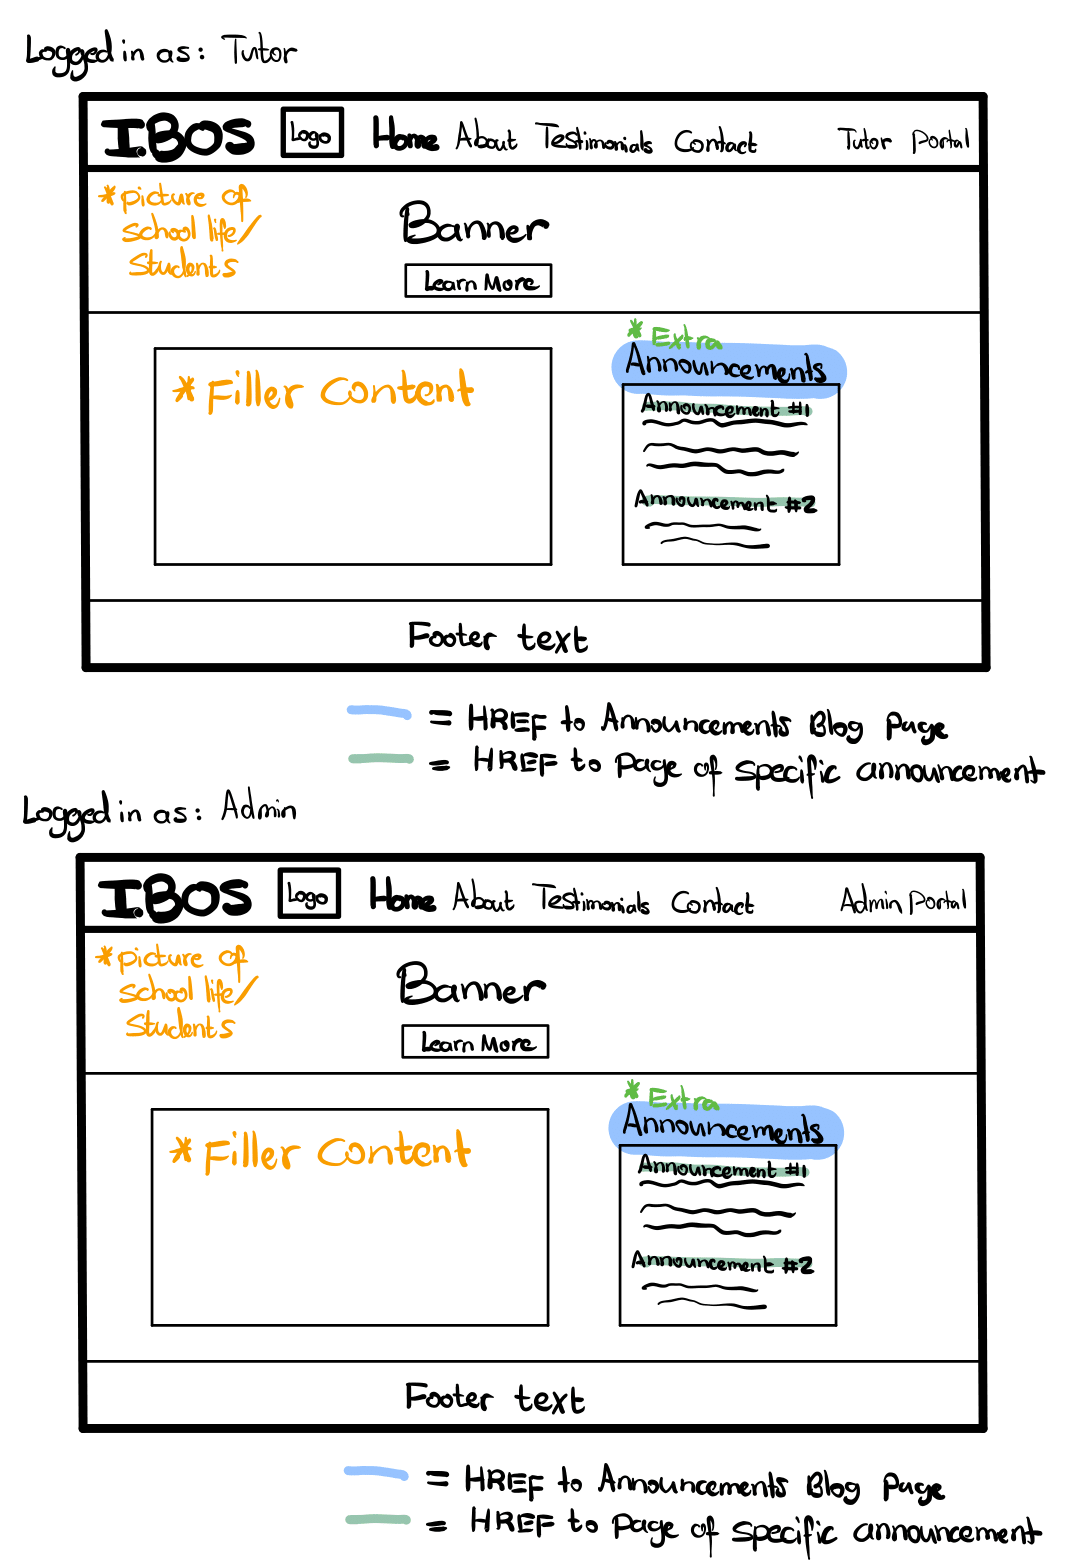 Logged in as: Tutor
IBOS Logo Home About Testimonials Contact Tutor Portal
*picture of
school life/
Students
Banner
Learn More
*Filler Content
*Extra
Announcements
Announcement #1
Announcement #2
Footer text
= HREF to Announcements Blog Page
= HREF to Page of specific announcement
Logged in as: Admin
IBOS Logo Home About Testimonials Contact Admin Portal
*picture of
school life/
Students
Banner
Learn More
*Filler Content
*Extra
Announcements
Announcement #1
Announcement #2
Footer text
= HREF to Announcements Blog Page
= HREF to Page of specific announcement